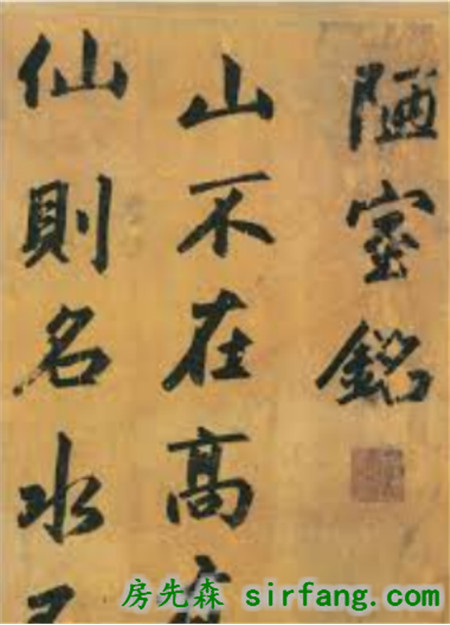 陋室銘
山不在高
仙則名水
房先森 sirfang.com